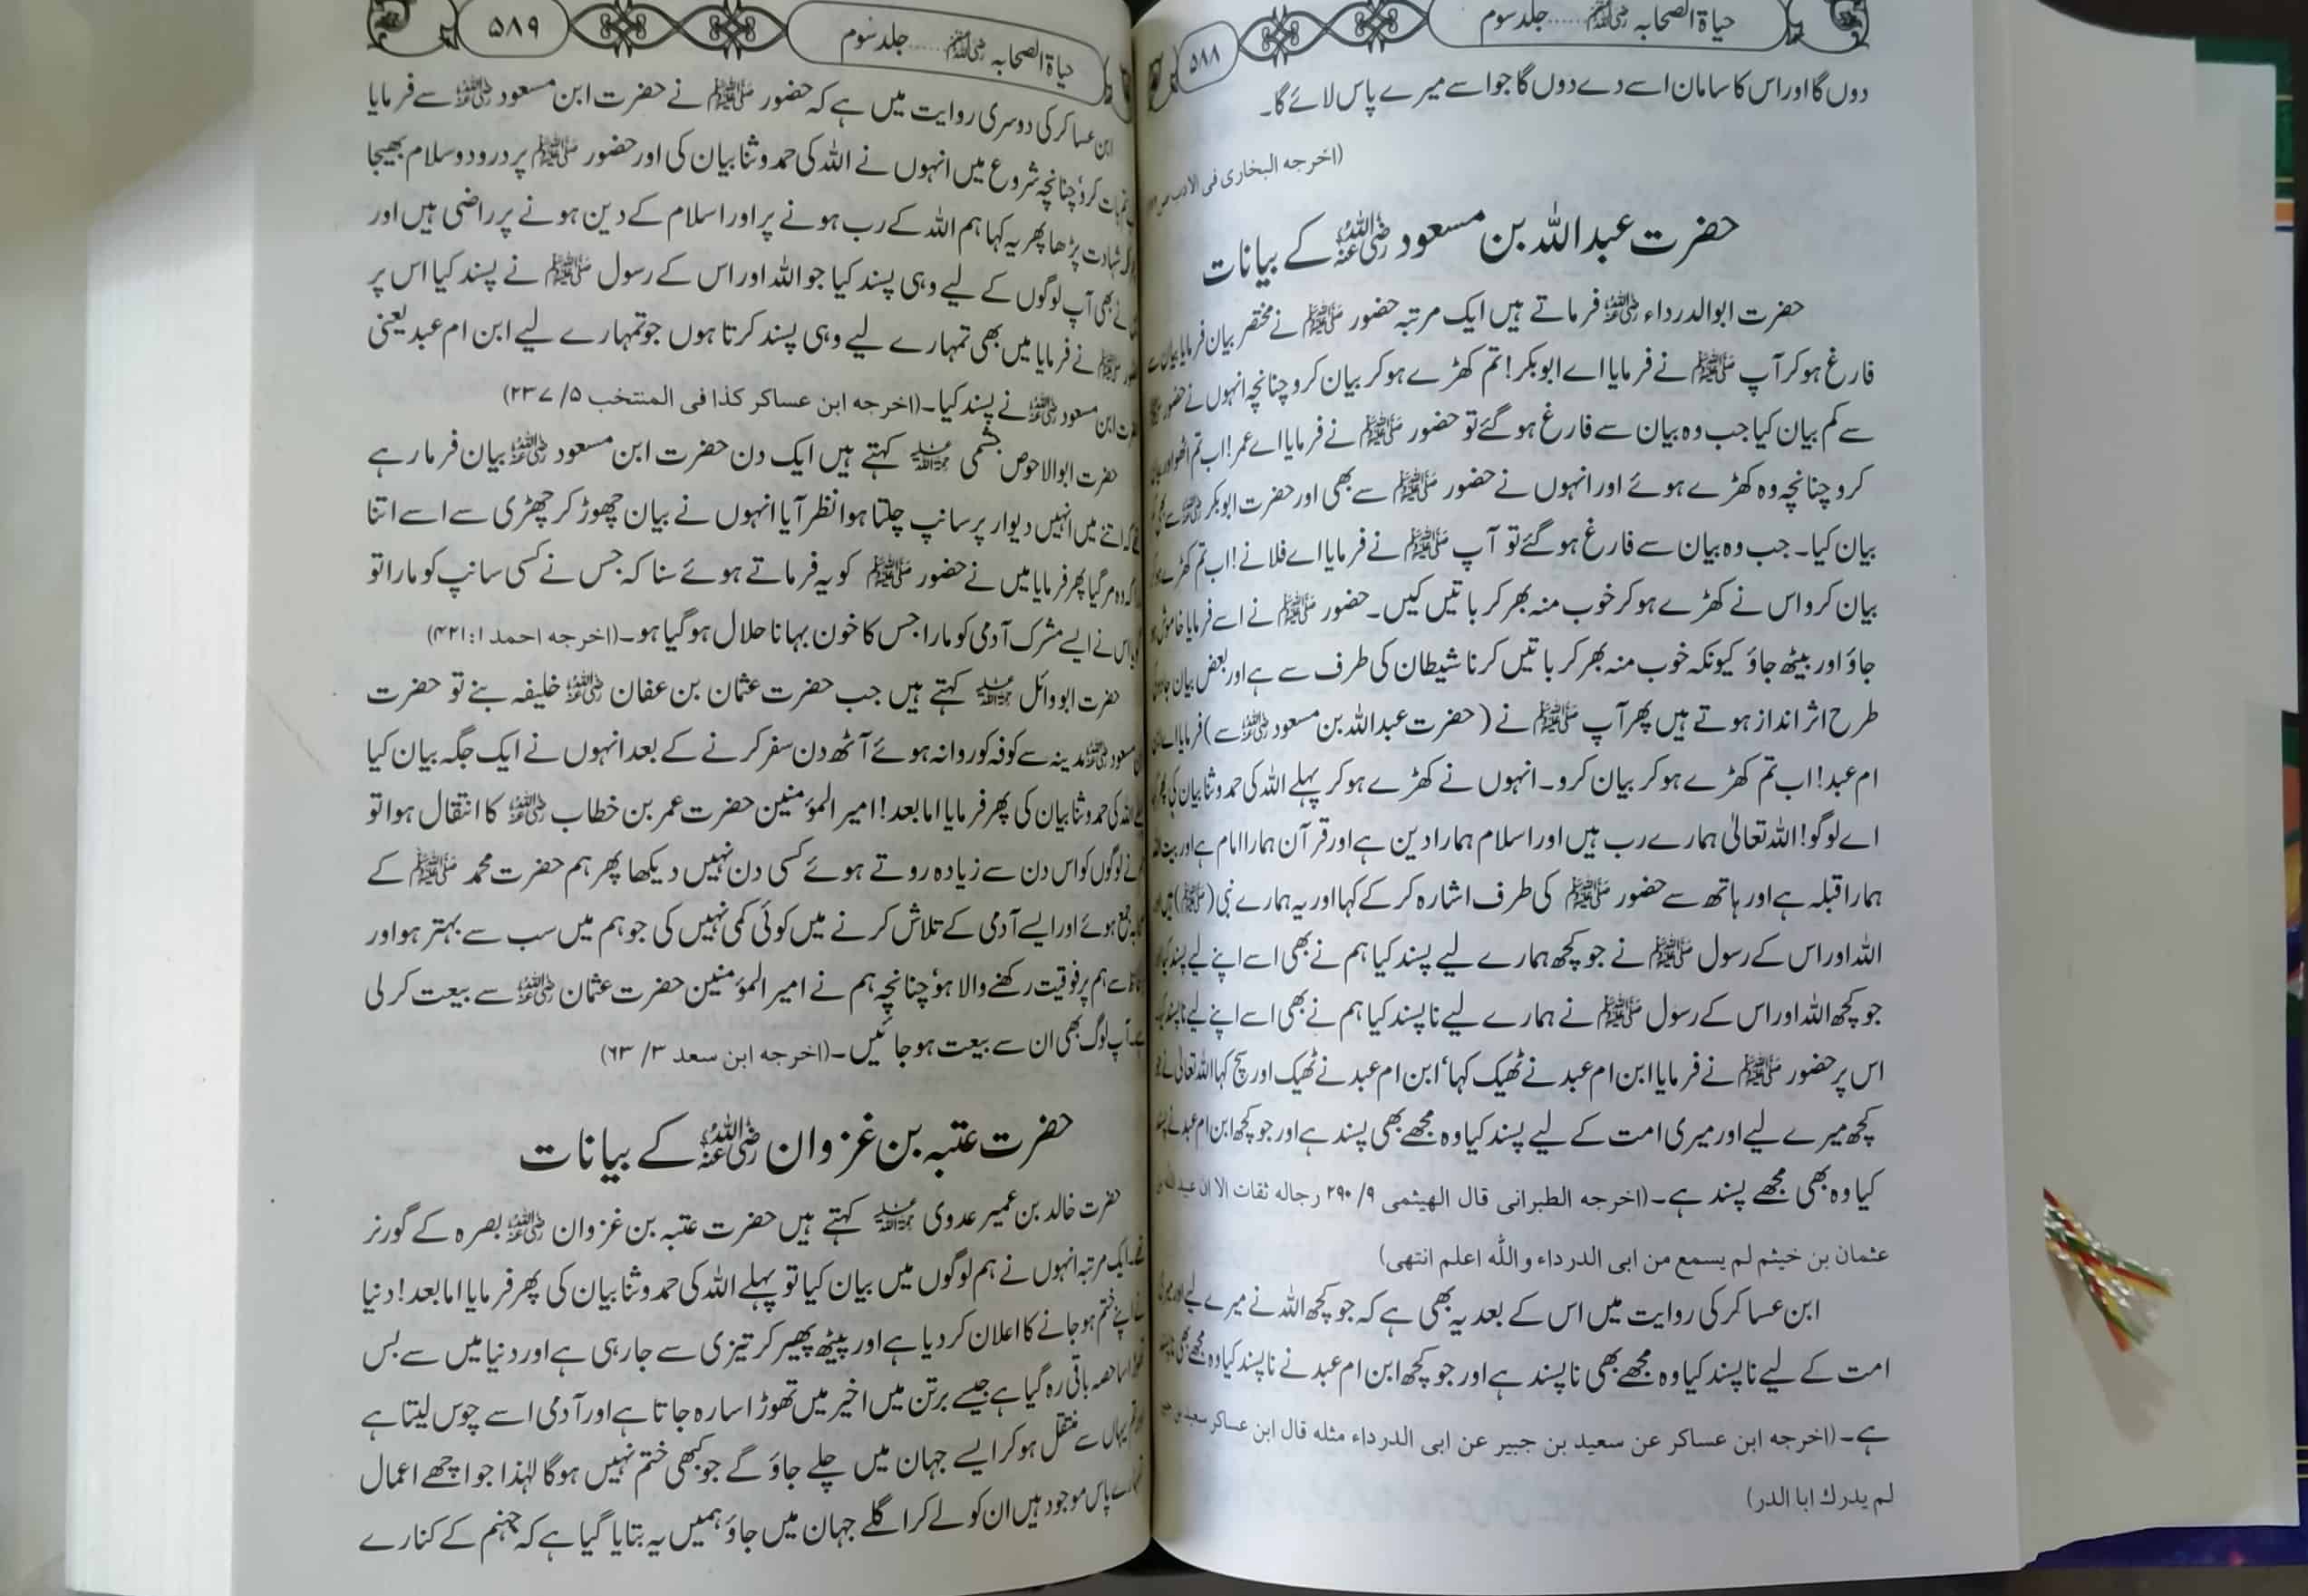 حیاۃ الصحابہ رضی اللہ عنہم ...... جلد سوم
۵۸۸
دوں گا اور اس کا سامان اسے دے دوں گا جو اسے میرے پاس لائے گا۔
(اخرجہ البخاری فی الادب
حضرت عبداللہ بن مسعود رضی اللہ عنہ کے بیانات
حضرت ابوالدرداء رضی اللہ عنہ فرماتے ہیں ایک مرتبہ حضور ﷺ نے مختصر بیان فرمایا بیان سے
فارغ ہو کر آپ ﷺ نے فرمایا اے ابوبکر! تم کھڑے ہو کر بیان کرو چنانچہ انہوں نے حضور
سے کم بیان کیا جب وہ بیان سے فارغ ہو گئے تو حضور ﷺ نے فرمایا اے عمر! اب تم اٹھو اور بیان
کرو چنانچہ وہ کھڑے ہوئے اور انہوں نے حضور ﷺ سے بھی اور حضرت ابوبکر رضی اللہ عنہ سے بھی کم
بیان کیا۔ جب وہ بیان سے فارغ ہو گئے تو آپ ﷺ نے فرمایا اے فلانے! اب تم کھڑے ہو کر
بیان کرو اس نے کھڑے ہو کر خوب منہ بھر کر باتیں کیں۔ حضور ﷺ نے اسے فرمایا خاموش ہو
جاؤ اور بیٹھ جاؤ کیونکہ خوب منہ بھر کر باتیں کرنا شیطان کی طرف سے ہے اور بعض بیان جادو کی
طرح اثر انداز ہوتے ہیں پھر آپ ﷺ نے (حضرت عبداللہ بن مسعود رضی اللہ عنہ سے) فرمایا اے
ام عبد! اب تم کھڑے ہو کر بیان کرو۔ انہوں نے کھڑے ہو کر پہلے اللہ کی حمد و ثنا بیان کی پھر کہا
اے لوگو! اللہ تعالیٰ ہمارے رب ہیں اور اسلام ہمارا دین ہے اور قرآن ہمارا امام ہے اور بیت اللہ
ہمارا قبلہ ہے اور ہاتھ سے حضور ﷺ کی طرف اشارہ کر کے کہا اور یہ ہمارے نبی (ﷺ) ہیں اور
اللہ اور اس کے رسول ﷺ نے جو کچھ ہمارے لیے پسند کیا ہم نے بھی اسے اپنے لیے پسند کیا اور
جو کچھ اللہ اور اس کے رسول ﷺ نے ہمارے لیے ناپسند کیا ہم نے بھی اسے اپنے لیے ناپسند کیا
اس پر حضور ﷺ نے فرمایا ابن ام عبد نے ٹھیک کہا، ابن ام عبد نے ٹھیک اور سچ کہا اللہ تعالیٰ نے جو
کچھ میرے لیے اور میری امت کے لیے پسند کیا وہ مجھے بھی پسند ہے اور جو کچھ ابن ام عبد نے پسند
کیا وہ بھی مجھے پسند ہے۔ (اخرجہ الطبرانی قال الھیثمی ۹/ ۲۹۰ رجالہ ثقات الا ان عبید اللہ بن
عثمان بن خیثم لم یسمع من ابی الدرداء واللہ اعلم انتھی)
ابن عساکر کی روایت میں اس کے بعد یہ بھی ہے کہ جو کچھ اللہ نے میرے لیے اور میری
امت کے لیے ناپسند کیا وہ مجھے بھی ناپسند ہے اور جو کچھ ابن ام عبد نے ناپسند کیا وہ مجھے بھی ناپسند
ہے۔ (اخرجہ ابن عساکر عن سعید بن جبیر عن ابی الدرداء مثلہ قال ابن عساکر سعید بن جبیر
لم یدرک ابا الدر)
حیاۃ الصحابہ رضی اللہ عنہم ...... جلد سوم
۵۸۹
ابن عساکر کی دوسری روایت میں ہے کہ حضور ﷺ نے حضرت ابن مسعود رضی اللہ عنہ سے فرمایا
تم بات کرو، چنانچہ شروع میں انہوں نے اللہ کی حمد و ثنا بیان کی اور حضور ﷺ پر درود و سلام بھیجا
شہادت پڑھا پھر یہ کہا ہم اللہ کے رب ہونے پر اور اسلام کے دین ہونے پر راضی ہیں اور
نے بھی آپ لوگوں کے لیے وہی پسند کیا جو اللہ اور اس کے رسول ﷺ نے پسند کیا اس پر
حضور ﷺ نے فرمایا میں بھی تمہارے لیے وہی پسند کرتا ہوں جو تمہارے لیے ابن ام عبد یعنی
حضرت ابن مسعود رضی اللہ عنہ نے پسند کیا۔ (اخرجہ ابن عساکر کذا فی المنتخب ۵/ ۲۳۷)
حضرت ابو الاحوص جشمی رحمۃ اللہ علیہ کہتے ہیں ایک دن حضرت ابن مسعود رضی اللہ عنہ بیان فرما رہے
تھے کہ اتنے میں انہیں دیوار پر سانپ چلتا ہوا نظر آیا انہوں نے بیان چھوڑ کر چھڑی سے اسے اتنا
کہ وہ مر گیا پھر فرمایا میں نے حضور ﷺ کو یہ فرماتے ہوئے سنا کہ جس نے کسی سانپ کو مارا تو
گویا اس نے ایسے مشرک آدمی کو مارا جس کا خون بہانا حلال ہو گیا ہو۔ (اخرجہ احمد ۱: ۴۲۱)
حضرت ابو وائل رحمۃ اللہ علیہ کہتے ہیں جب حضرت عثمان بن عفان رضی اللہ عنہ خلیفہ بنے تو حضرت
ابن مسعود رضی اللہ عنہ مدینہ سے کوفہ کو روانہ ہوئے آٹھ دن سفر کرنے کے بعد انہوں نے ایک جگہ بیان کیا
پہلے اللہ کی حمد و ثنا بیان کی پھر فرمایا اما بعد! امیر المؤمنین حضرت عمر بن خطاب رضی اللہ عنہ کا انتقال ہوا تو
نے لوگوں کو اس دن سے زیادہ روتے ہوئے کسی دن نہیں دیکھا پھر ہم حضرت محمد ﷺ کے
صحابہ جمع ہوئے اور ایسے آدمی کے تلاش کرنے میں کوئی کمی نہیں کی جو ہم میں سب سے بہتر ہو اور
سے ہم پر فوقیت رکھنے والا ہو، چنانچہ ہم نے امیر المؤمنین حضرت عثمان رضی اللہ عنہ سے بیعت کر لی
آپ لوگ بھی ان سے بیعت ہو جائیں۔ (اخرجہ ابن سعد ۳/ ۶۳)
حضرت عتبہ بن غزوان رضی اللہ عنہ کے بیانات
حضرت خالد بن عمیر عدوی رحمۃ اللہ علیہ کہتے ہیں حضرت عتبہ بن غزوان رضی اللہ عنہ بصرہ کے گورنر
تھے۔ ایک مرتبہ انہوں نے ہم لوگوں میں بیان کیا تو پہلے اللہ کی حمد و ثنا بیان کی پھر فرمایا اما بعد! دنیا
نے اپنے ختم ہو جانے کا اعلان کر دیا ہے اور پیٹھ پھیر کر تیزی سے جا رہی ہے اور دنیا میں سے بس
تھوڑا سا حصہ باقی رہ گیا ہے جیسے برتن میں اخیر میں تھوڑا سا رہ جاتا ہے اور آدمی اسے چوس لیتا ہے
اور تم یہاں سے منتقل ہو کر ایسے جہان میں چلے جاؤ گے جو کبھی ختم نہیں ہوگا لہٰذا جو اچھے اعمال
تمہارے پاس موجود ہیں ان کو لے کر اگلے جہان میں جاؤ ہمیں یہ بتایا گیا ہے کہ جہنم کے کنارے